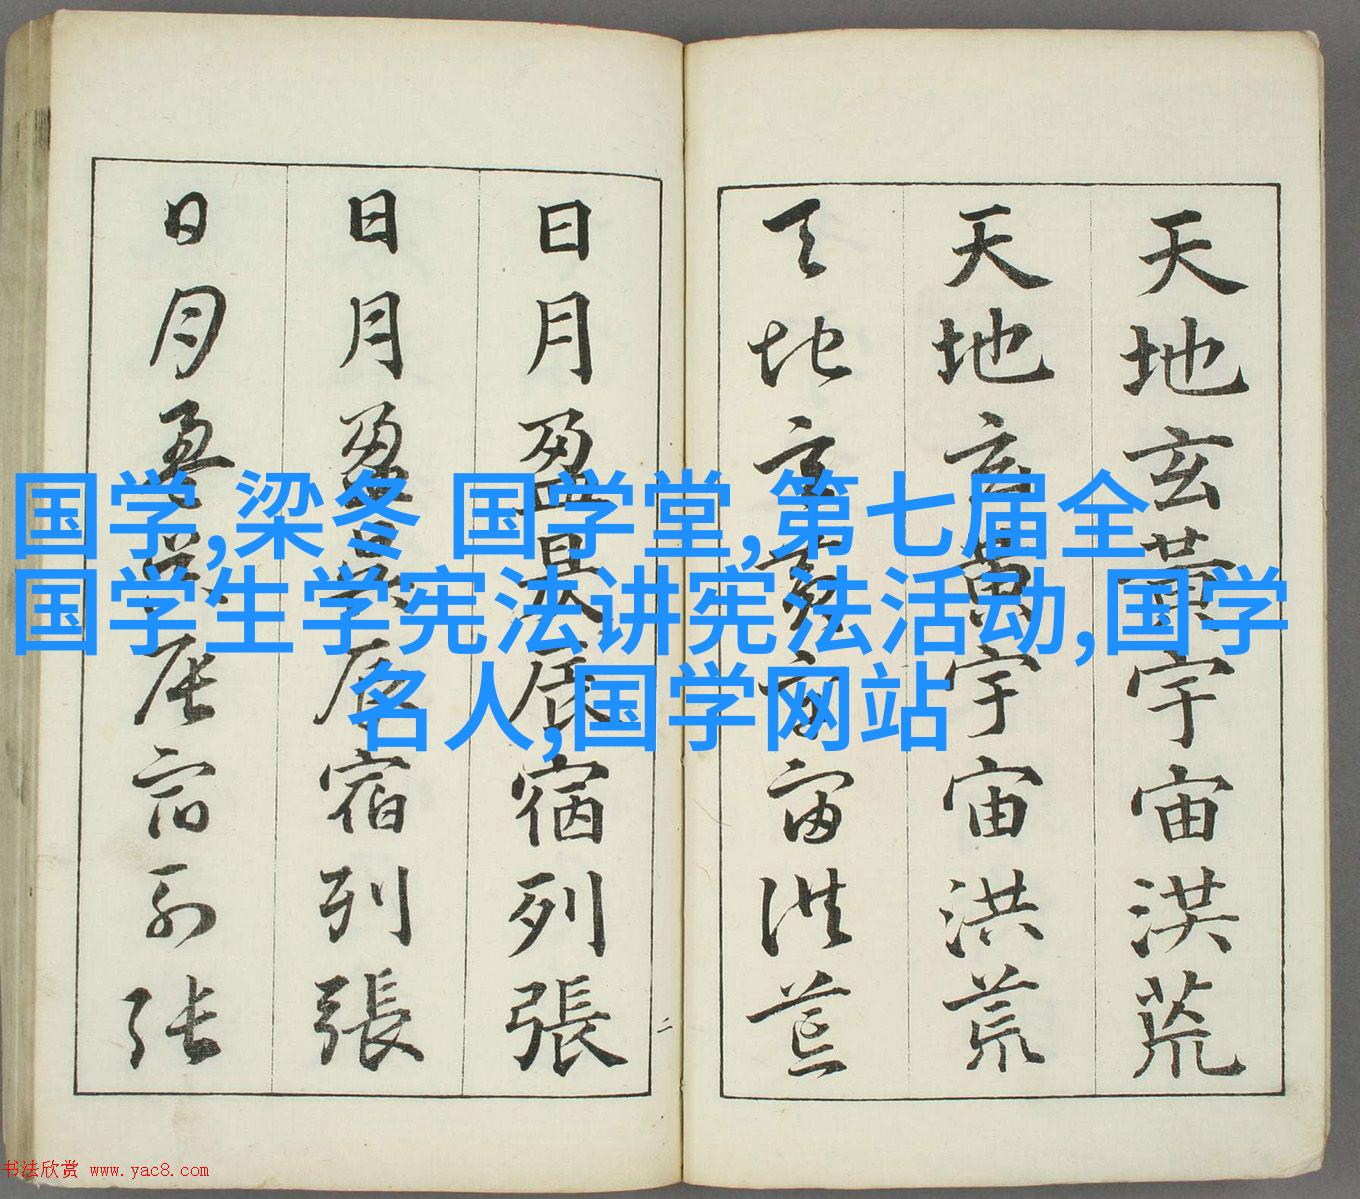 国学,梁冬 国学堂,第七届全
国学生学宪法讲宪法活动,国学
名人,国学网站
天地玄黃宇宙洪荒
天地玄黃宇宙洪荒
天地玄黃宇宙洪荒
日月盈昃辰宿列張
日月盈昃辰宿列張
日月盈昃辰宿列張
二
书法欣赏 www.yac8.com